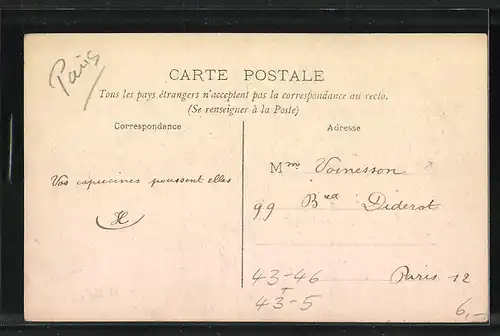 Paris
CARTE POSTALE
Tous les pays étrangers n'acceptent pas la correspondance au recto.
(Se renseigner à la Poste)
Correspondance
Adresse
Vos capucines poussent elles
Mme Voinesson
99 Bvd Diderot
Paris 12
43-46
43-5
6,-